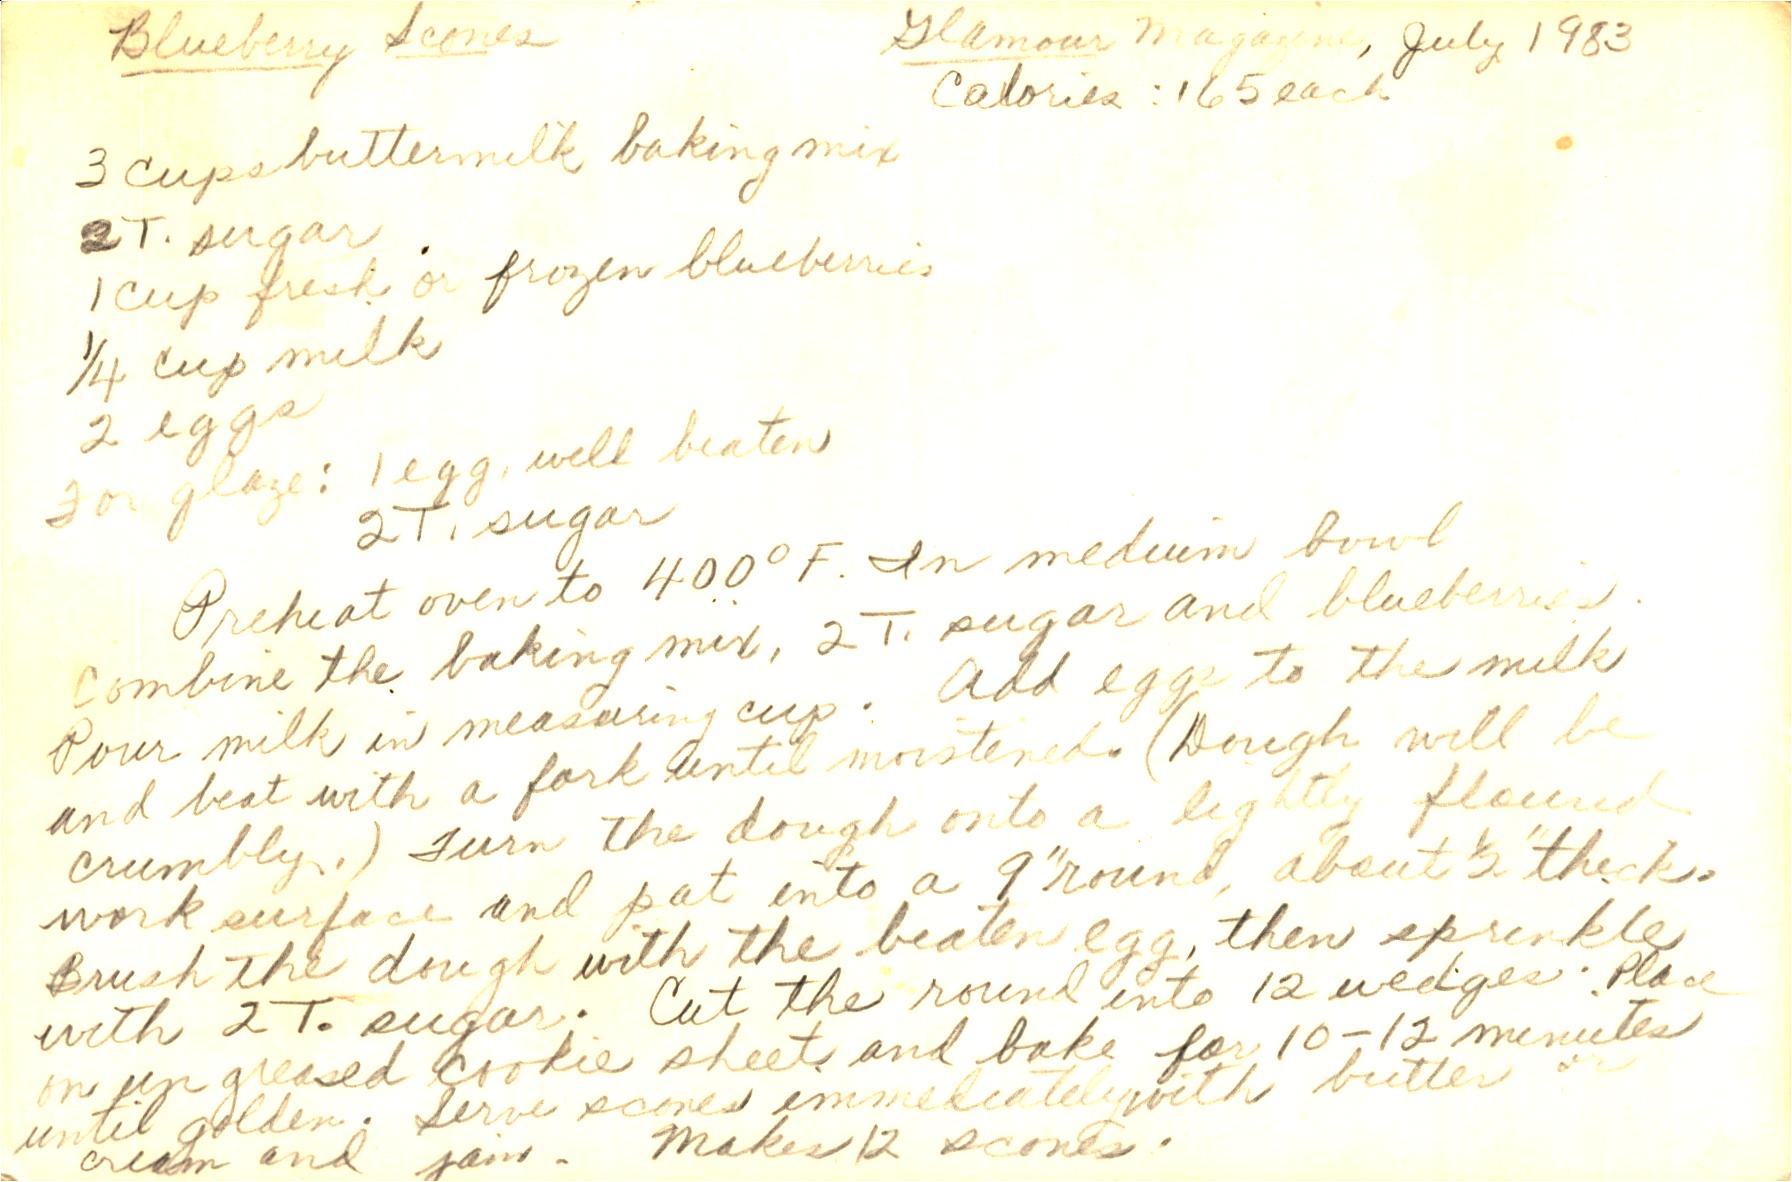 Blueberry Scones
Glamour Magazine, July 1983
Calories: 165 each
3 cups buttermilk baking mix
2 T. sugar
1 cup fresh or frozen blueberries
1/4 cup milk
2 eggs
For glaze: 1 egg, well beaten
2 T. sugar
Preheat oven to 400° F. In medium bowl
combine the baking mix, 2 T. sugar and blueberries.
Pour milk in measuring cup. Add eggs to the milk
and beat with a fork until moistened. (Dough will be
crumbly.) Turn the dough onto a lightly floured
work surface and pat into a 9" round, about 1/2" thick.
Brush the dough with the beaten egg, then sprinkle
with 2 T. sugar. Cut the round into 12 wedges. Place
on ungreased cookie sheet and bake for 10-12 minutes
until golden. Serve scones immediately with butter or
cream and jam. Makes 12 scones.